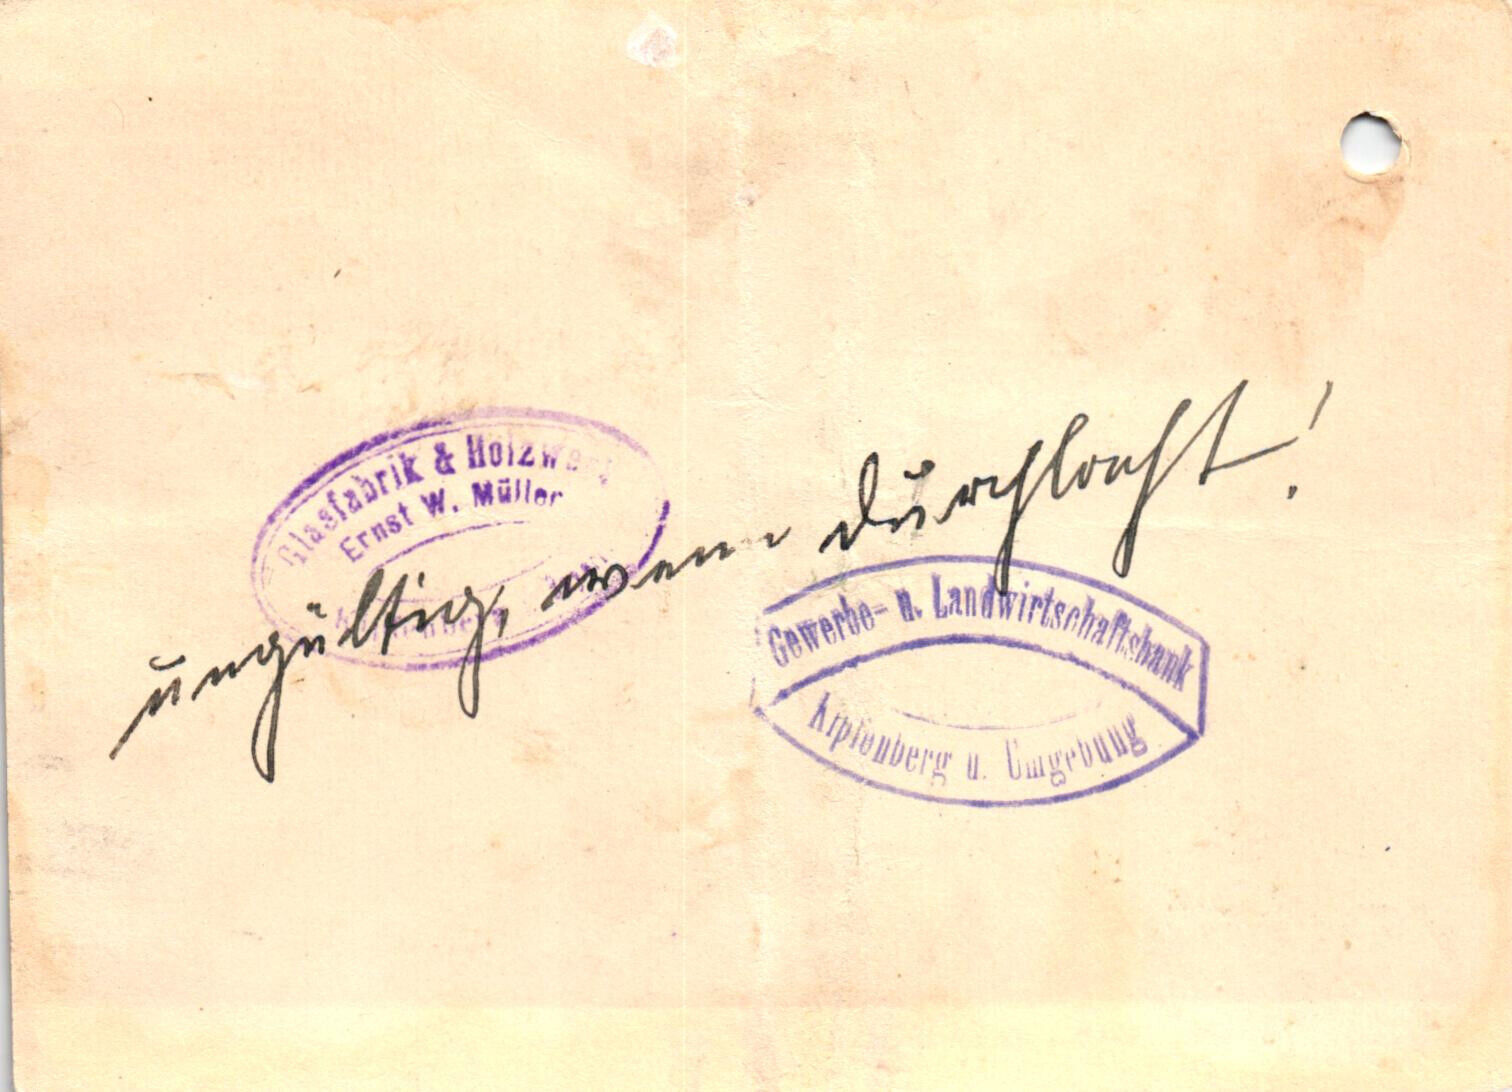 Glasfabrik & Holzwerk
Ernst W. Müller
ungültig, wenn durchlocht!
Gewerbe- u. Landwirtschaftsbank
Kipfenberg u. Umgebung